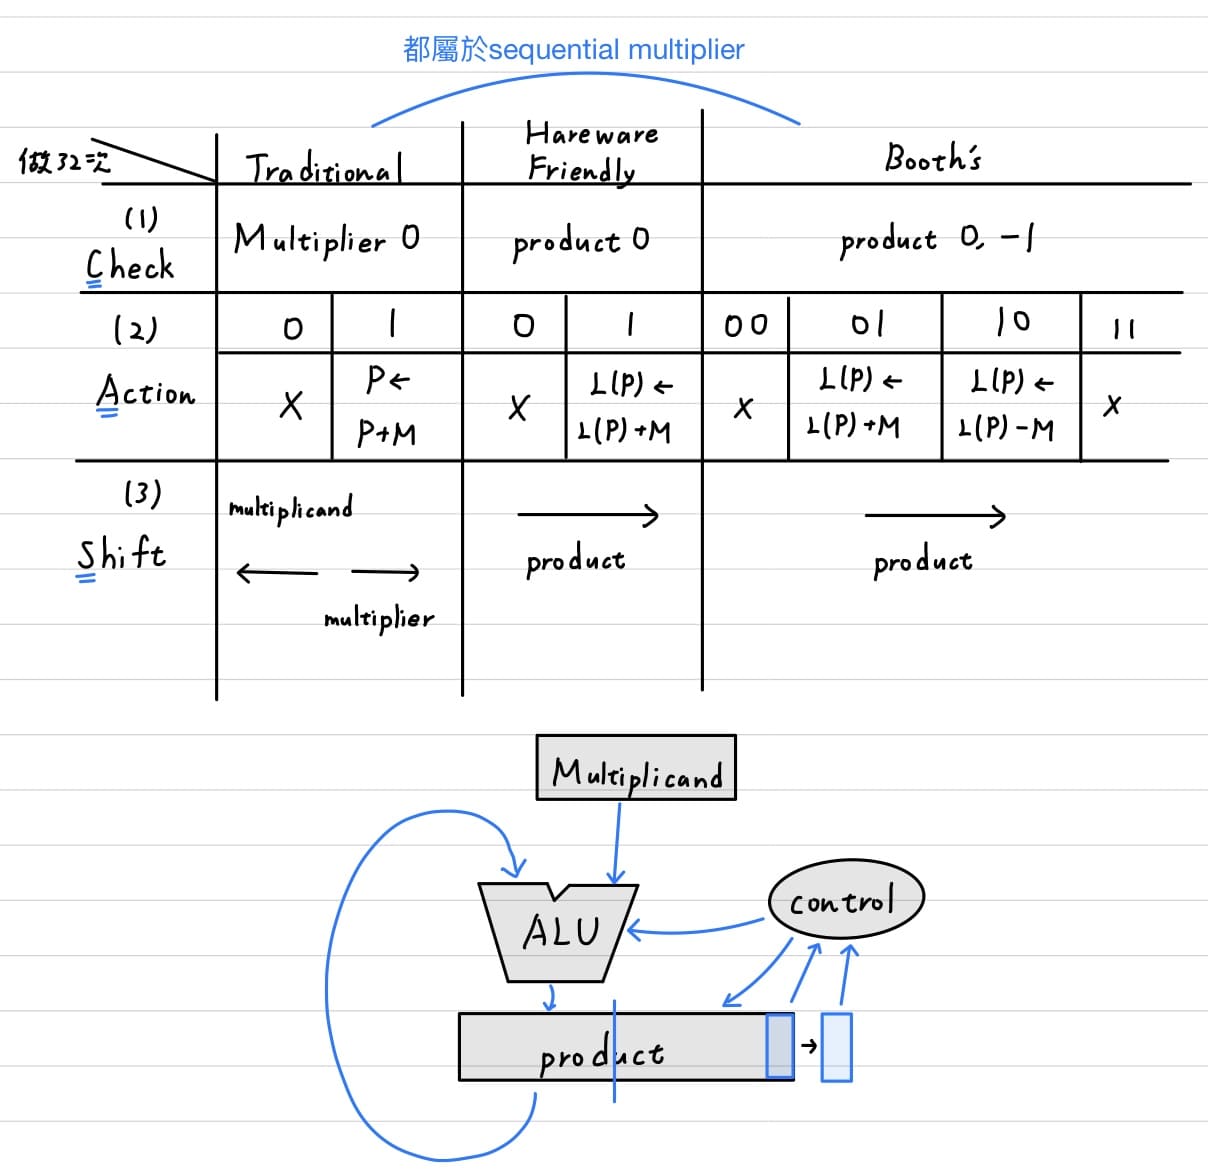 都屬於sequential multiplier
做32次
Traditional
Hareware
Friendly
Booth's
(1)
Check
Multiplier 0
product 0
product 0, -1
(2)
Action
0
1
0
1
00
01
10
11
X
P←
P+M
X
L(P) ←
L(P) +M
X
L(P) ←
L(P) +M
L(P) ←
L(P) -M
X
(3)
Shift
multiplicand
multiplier
product
product
Multiplicand
ALU
control
product